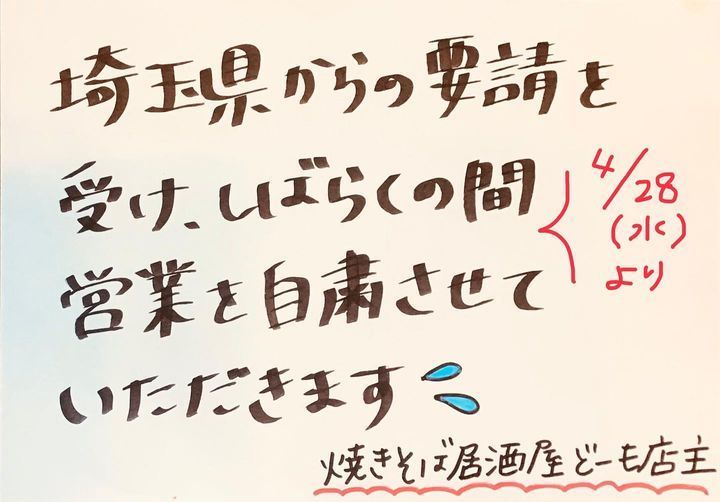 埼玉県からの要請を
受け、しばらくの間
営業を自粛させて
いただきます
4/28
(水)
より
焼きそば居酒屋どーも店主